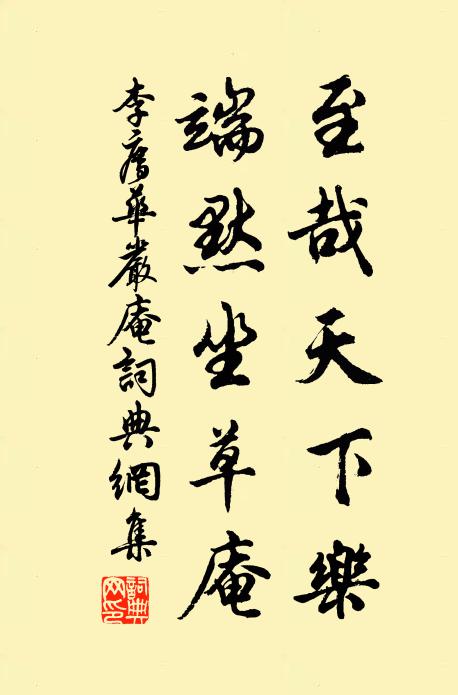 至哉天下樂
端黙坐草庵
李廌華嚴庵詞典網集
詞典